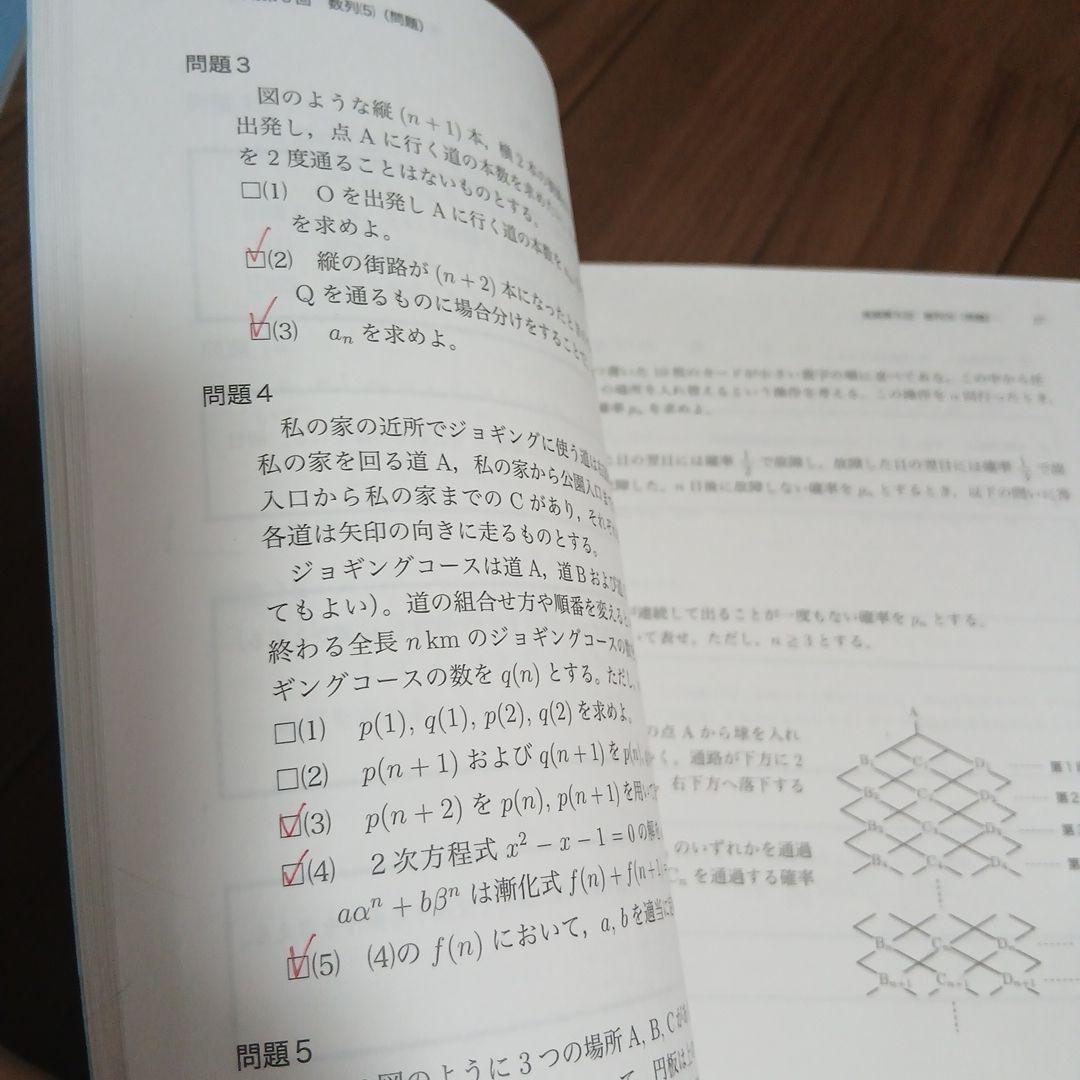 回 数列(5)（問題）
問題3
図のような縦 (n + 1) 本，横 2 本の
出発し，点 A に行く道の本数を求め
を 2 度通ることはないものとする。
□(1) O を出発し A に行く道の本数を
を求めよ。
□(2) 縦の街路が (n + 2) 本になったとき
Q を通るものに場合分けをすることで
□(3) aₙ を求めよ。
問題4
私の家の近所でジョギングに使う道は
私の家を回る道 A，私の家から公園入口ま
入口から私の家までの C があり，それぞれ
各道は矢印の向きに走るものとする。
ジョギングコースは道 A，道 B および
てもよい）。道の組合せ方や順番を変える
終わる全長 n km のジョギングコースの
ギングコースの数を q(n) とする。ただし，
□(1) p(1), q(1), p(2), q(2) を求めよ。
□(2) p(n + 1) および q(n + 1) を p(n),
□(3) p(n + 2) を p(n), p(n + 1) を用い
□(4) 2 次方程式 x² − x − 1 = 0 の解を
aαⁿ + bβⁿ は漸化式 f(n) + f(n + 1)
□(5) (4)の f(n) において，a, b を適当に
問題5
図のように 3 つの場所 A, B, C が
円板は
いた 10 枚のカードが小さい数字の順に並べてある。この中から任
の場所を入れ替えるという操作を考える。この操作を n 回行ったとき，
確率 pₙ を求めよ。
日の翌日には確率 1/2 で故障し，故障した日の翌日には確率
障した。n 日後に故障しない確率を pₙ とするとき，以下の問いに答
連続して出ることが一度もない確率を pₙ とする。
いて表せ。ただし，n ≧ 3 とする。
の点 A から球を入れ
く，通路が下方に 2
右下方へ落下する
のいずれかを通過
Cₙ を通過する確率
A
B₁ C₁ D₁ 第1
B₂ C₂ D₂ 第2
B₃ C₃ D₃ 第
B₄ C₄ D₄ 第
Bₙ Cₙ Dₙ
Bₙ₊₁ Cₙ₊₁ Dₙ₊₁